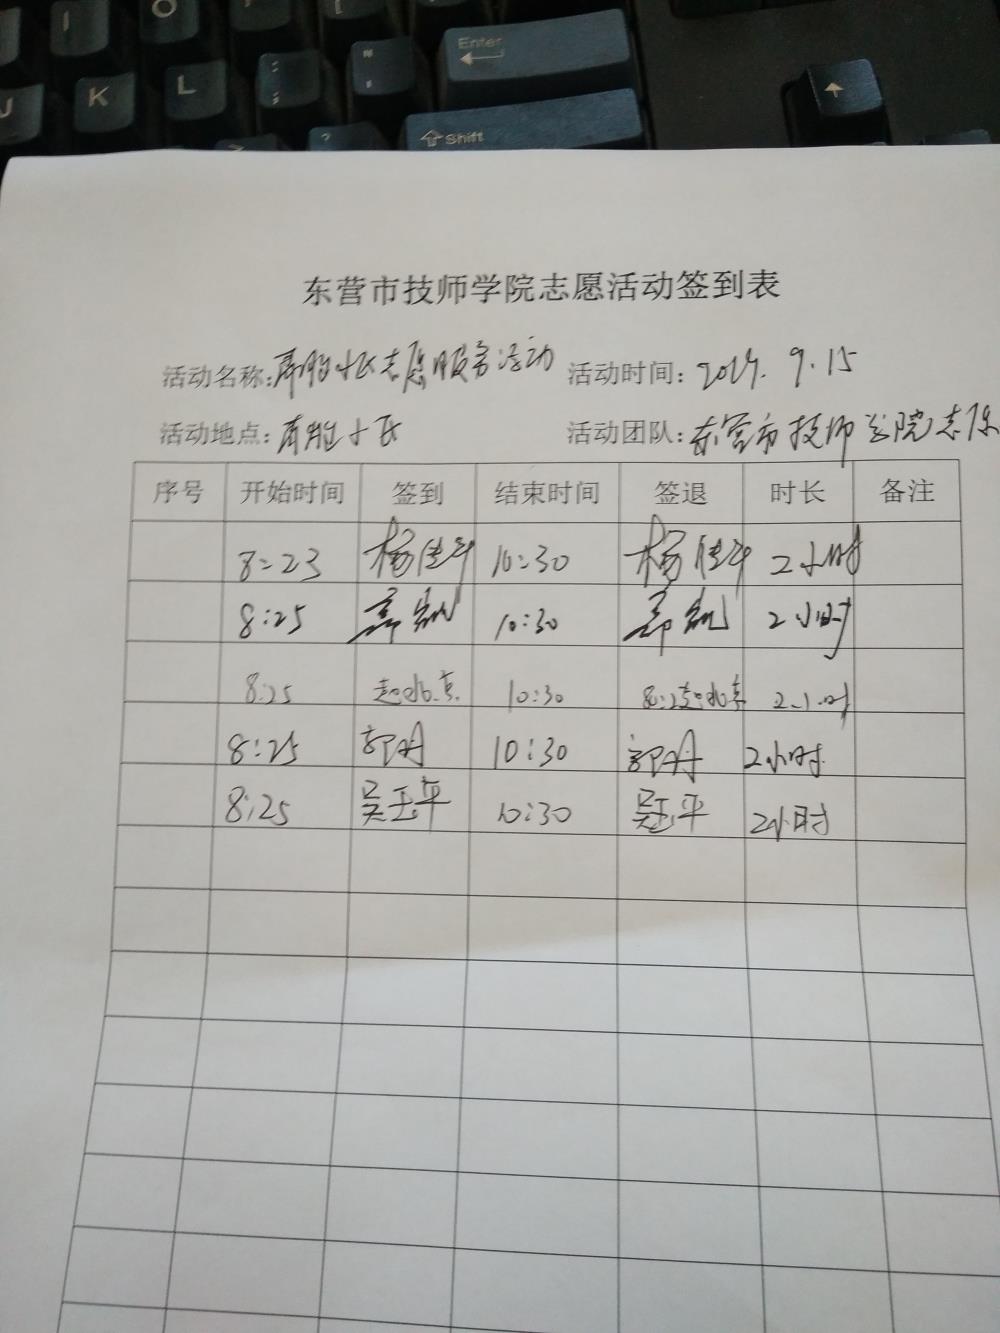 I O
J K L : ; " ' Enter
? Shift
东营市技师学院志愿活动签到表
活动名称: 志愿服务活动 活动时间: 2019. 9. 15
活动地点: 活动团队: 东营市技师学院志愿
序号 开始时间 签到 结束时间 签退 时长 备注
8:23 杨佳 10:30 杨佳 2小时
8:25 10:30 2小时
8:25 10:30 8:25 2小时
8:25 郭丹 10:30 郭丹 2小时
8:25 吴玉平 10:30 吴玉平 2小时